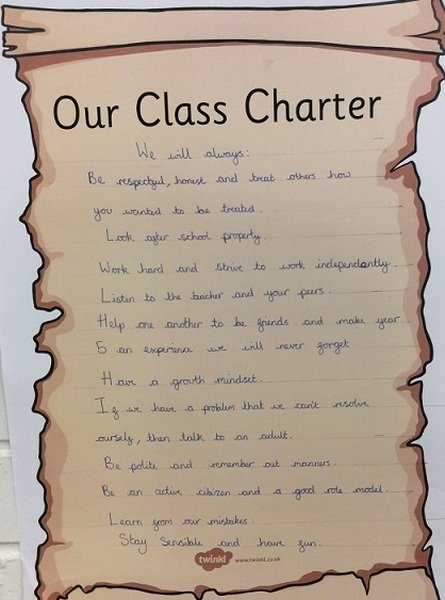 Our Class Charter
We will always:
Be respectful, honest and treat others how
you wanted to be treated.
Look after school property.
Work hard and strive to work independantly.
Listen to the teacher and your peers.
Help one another to be friends and make year
5 an experience we will never forget
Have a growth mindset.
If we have a problem that we can't resolve
ourself, then talk to an adult.
Be polite and remember out manners.
Be an active citizen and a good role model.
Learn from our mistakes.
Stay Sensible and have fun.
twinkl www.twinkl.co.uk